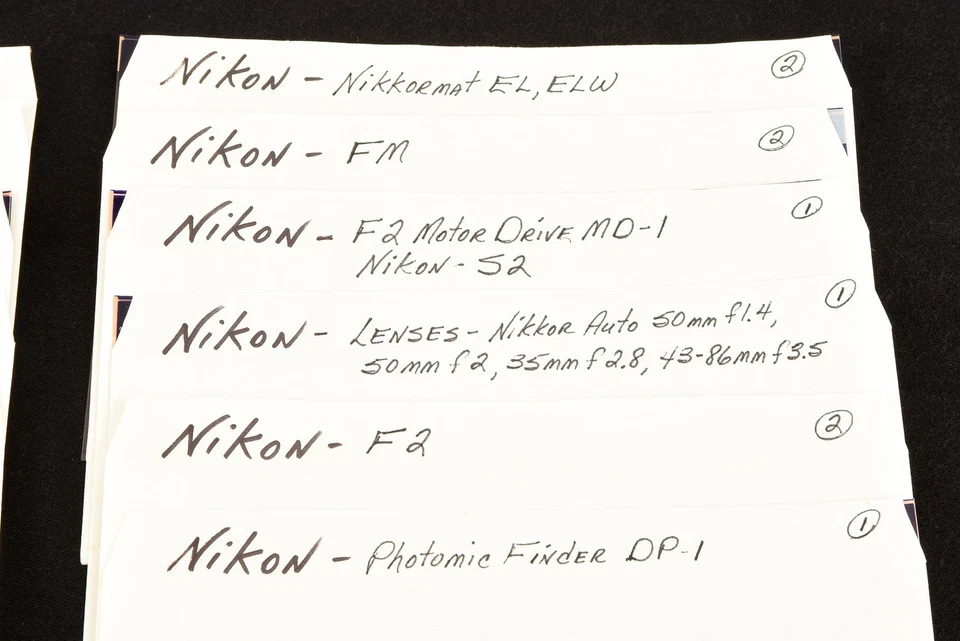 Nikon - Nikkormat EL, ELW 2
Nikon - FM 2
Nikon - F2 Motor Drive MD-1 1
Nikon - S2
Nikon - Lenses - Nikkor Auto 50mm f1.4, 1
50mm f2, 35mm f2.8, 43-86mm f3.5
Nikon - F2 2
Nikon - Photomic Finder DP-1 1